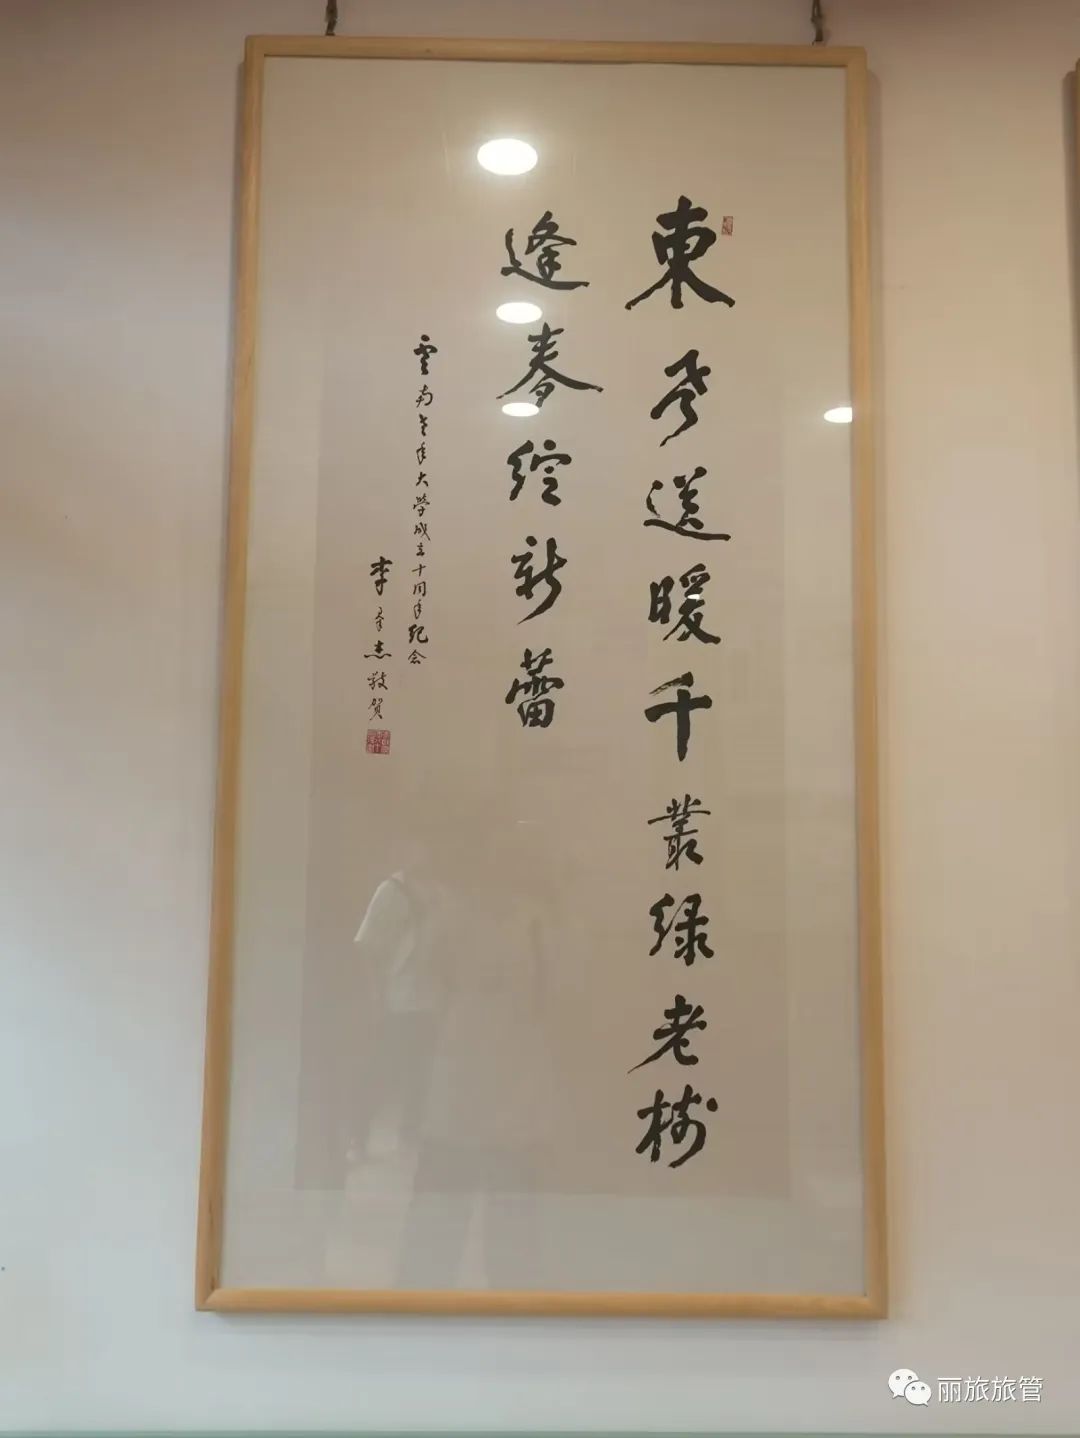 東风送暖千叢绿老树
逢春绽新蕾
雲南老年大學成立十周年纪念
李群杰敬贺
丽旅旅管